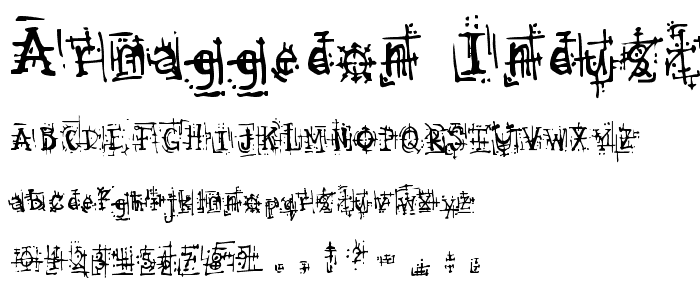 Armaggedon Indust
ABCDEFGHIJKLMNOPQRSTUVWXYZ
abcdefghijklmnopqrstuvwxyz
0123456789